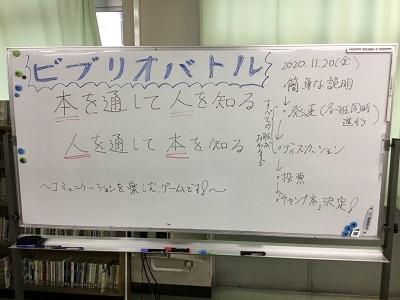 ビブリオバトル
本を通して人を知る
人を通して本を知る
〜コミュニケーションを楽しむゲームです!〜
2020.11.20(金)
・簡単な説明
↓
・発表(各班同時進行)
↓
・ディスカッション
↓
・投票
↓
・チャンプ本決定!